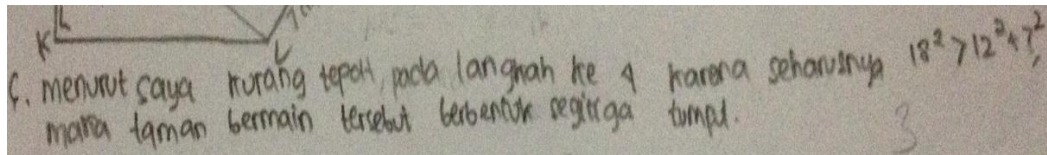 K L
c. menurut saya kurang tepat, pada langkah ke 4 karena seharusnya 18² > 12² + 7²,
maka taman bermain tersebut berbentuk segitiga tumpul. 3